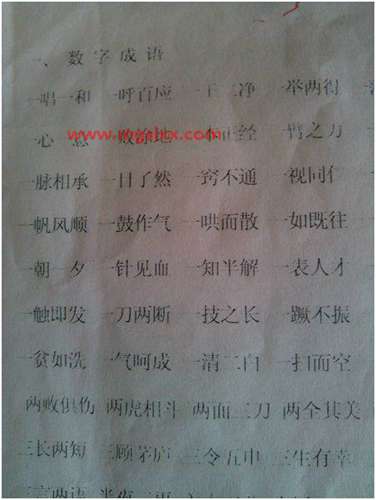 一、数字成语
一唱一和 一呼百应 一干二净 一举两得
一心一意 一败涂地 一本正经 一臂之力
一脉相承 一目了然 一窍不通 一视同仁
一帆风顺 一鼓作气 一哄而散 一如既往
一朝一夕 一针见血 一知半解 一表人才
一触即发 一刀两断 一技之长 一蹶不振
一贫如洗 一气呵成 一清二白 一扫而空
两败俱伤 两虎相斗 两面三刀 两全其美
三长两短 三顾茅庐 三令五申 三生有幸
三言两语